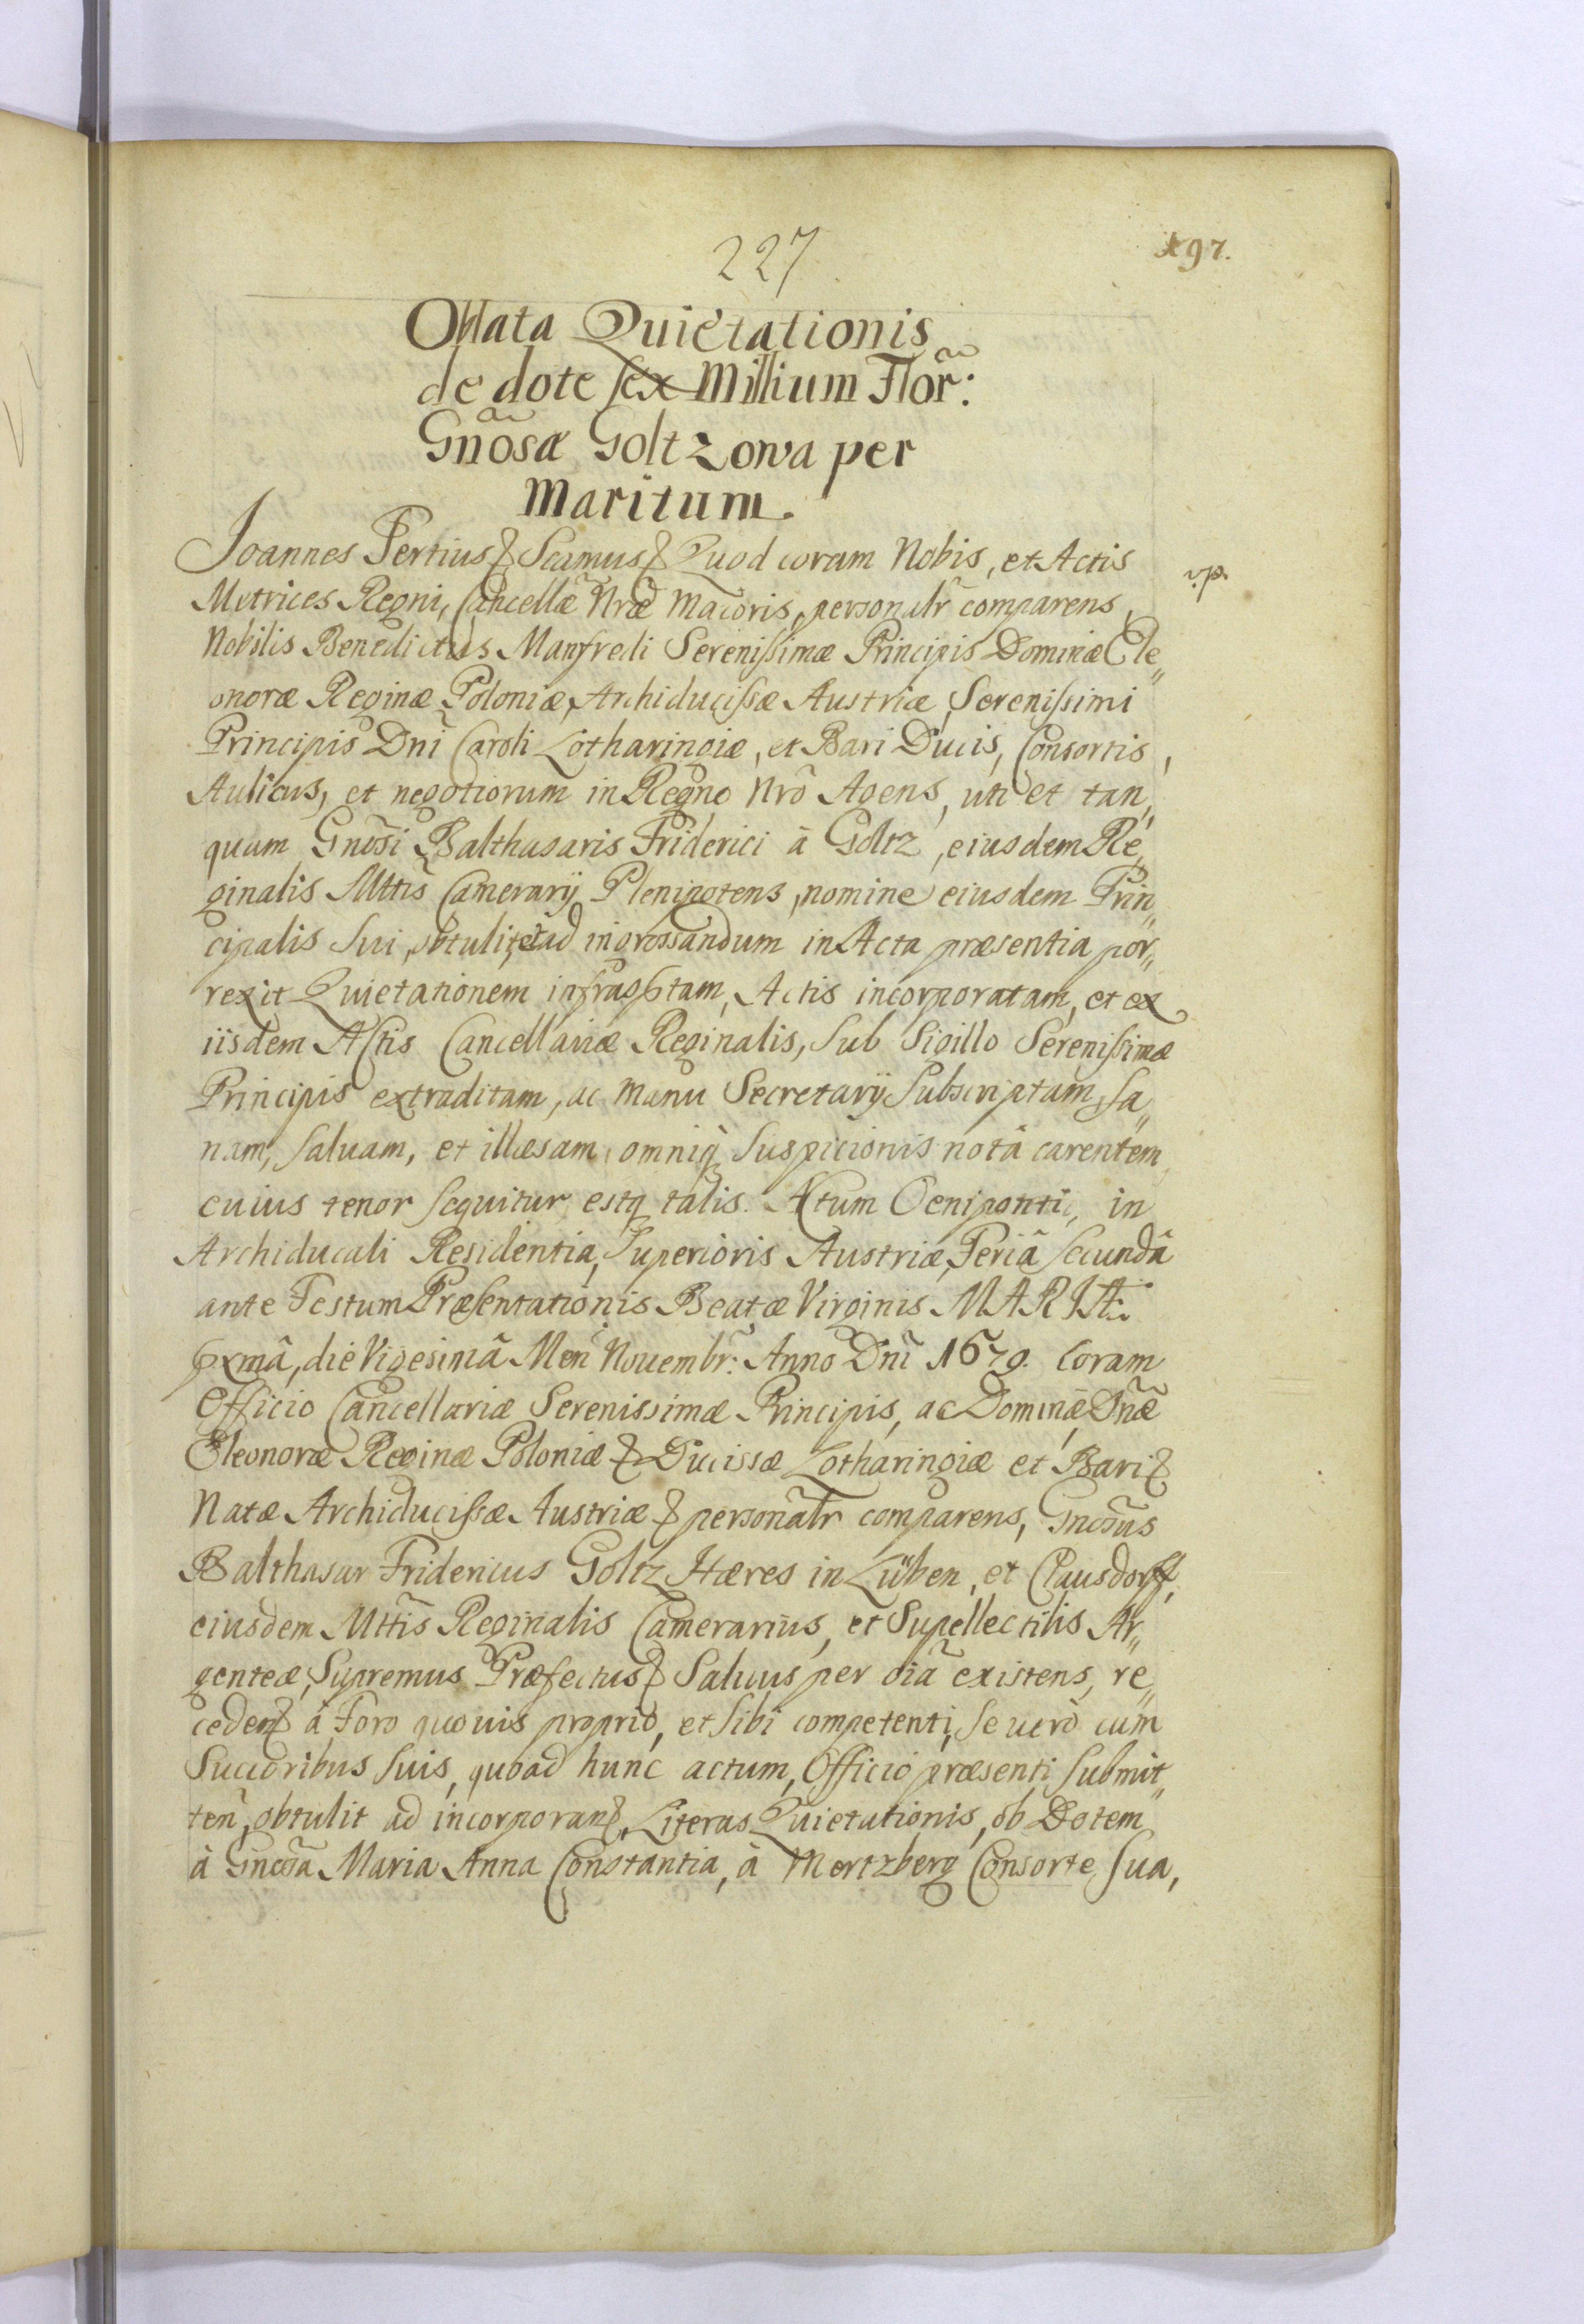 227
197.
Oblata Quietationis
de dote sex Millium Flor̃:
Gnõsæ Goltzowa per
Maritum.
Joannes Tertius &c Scamus &c Quod coram Nobis, et Actis
v.p.
Metrices Regni, Cancellæ Nræ Maioris, personalr̃ comparens
Nobilis Benedictus Manfredi Serenissimæ Principis Dominæ Ele„
onoræ Reginæ Poloniæ, Archiducissæ Austriæ, Serenissimi
Principis Dnĩ Caroli Lotharingiæ, et Bari Ducis, Consortis,
Aulicus, et negotiorum in Regno Nrõ Agens, uti et tan„
quam Gnõsi Balthasaris Friderici à Goltz, eiusdem Re„
ginalis Mttis Camerarij Plenipotens, nomine eiusdem Prin„
cipalis Sui, obtulit, et ad ingrossandum in Acta præsentia por„
rexit Quietationem infrascptam, Actis incorporatam, et ex
iisdem Actis Cancellariæ Reginalis, Sub Sigillo Serenissimæ
Principis extraditam, ac manu Secretarij Subscriptam, Sa„
nam, Saluam, et illæsam, omniq̃ Suspicionis notâ carentem
cuius tenor sequitur estq̃ talis. Actum Oeniponti, in
Archiducali Residentia, Superioris Austriæ, Feriâ Secundâ
ante Festum Præsentationis Beatæ Virginis MARIÆ
pxmâ, die Vigesimâ Men̄ Nouembr̃: Anno Dnĩ 1679. Coram
Officio Cancellariæ Serenissimæ Principis, ac Dominæ Dnæ
Eleonoræ Reginæ Poloniæ &c Ducissæ Lotharingiæ et Bari &c
Natæ Archiducissæ Austriæ &c personalr̃ comparens, Gnõsus
Balthasar Fridericus Goltz Hæres in Lüben, et Clausdorff,
eiusdem Mttis Reginalis Camerarius, et Supellectilis Ar„
genteæ, Supremus Præfectus &c Saluus per oĩa existens, re„
ceden̄ à Foro quouis proprio, et Sibi competenti, Se uerò cum
Succoribus Suis, quoad hunc actum, Officio præsenti Submit„
ten̄, obtulit ad incorporan̄, Literas Quietationis, ob Dotem
à Gnõsa Maria Anna Constantia, à Mertzberg Consorte Sua,